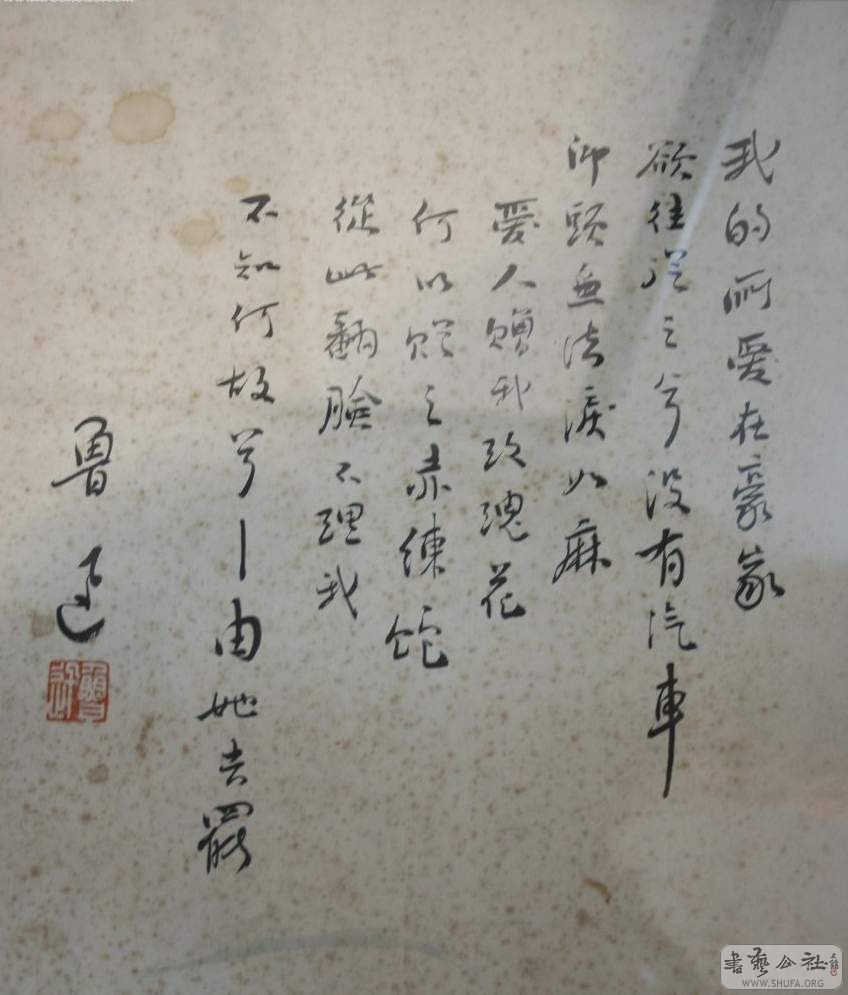 我的所愛在豪家
欲往從之兮没有汽車
仰頭無法淚如麻
愛人贈我玫瑰花
何以贈之赤練蛇
從此翻臉不理我
不知何故兮—由她去罷
魯迅
書藝公社
WWW.SHUFA.ORG